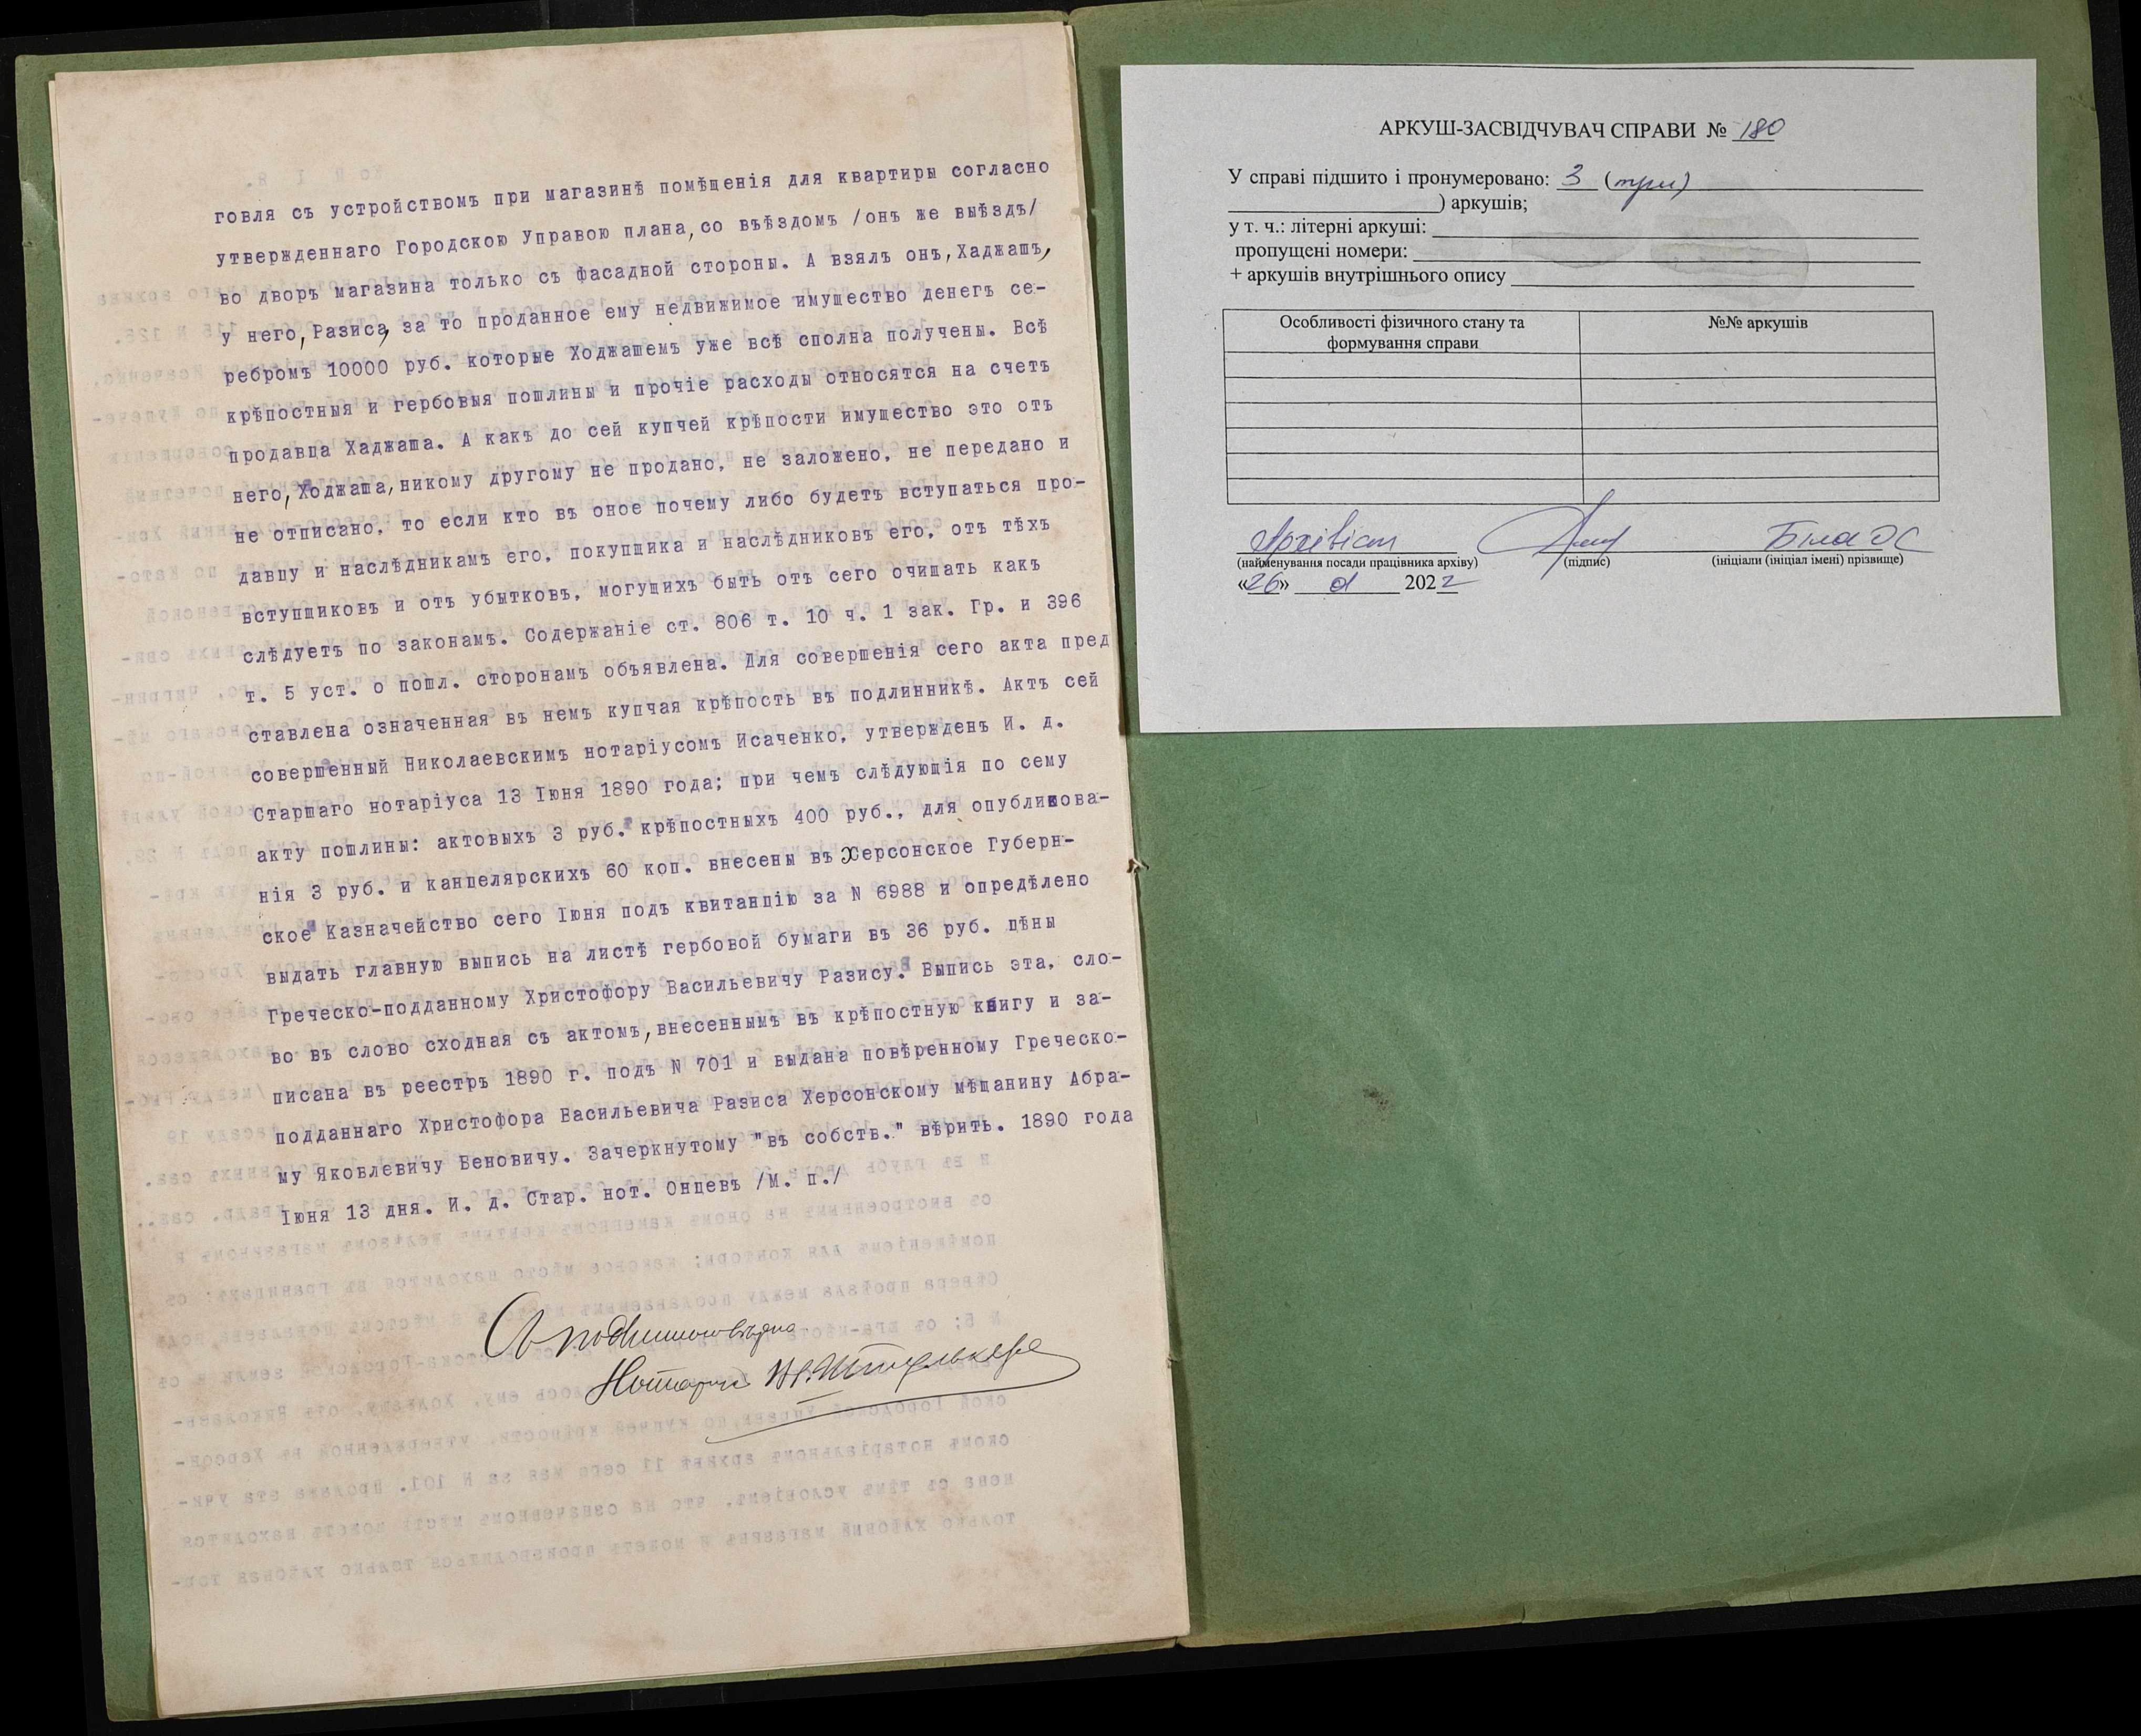 говля съ устройствомъ при магазинѣ помѣщенія для квартиры согласно
утвержденнаго Городскою Управою плана, со въѣздомъ /онъ же выѣздъ/
во дворъ магазина только съ фасадной стороны. А взялъ онъ, Хаджашъ,
у него, Разиса, за то проданное ему недвижимое имущество денегъ се-
ребромъ 10000 руб. которые Ходжашемъ уже всѣ сполна получены. Всѣ
крѣпостныя и гербовыя пошлины и прочіе расходы относятся на счетъ
продавца Хаджаша. А какъ до сей купчей крѣпости имущество это отъ
него, Ходжаша, никому другому не продано, не заложено, не передано и
не отписано, то если кто въ оное почему либо будетъ вступаться про-
давцу и наслѣдникамъ его, покупщика и наслѣдниковъ его, отъ тѣхъ
вступщиковъ и отъ убытковъ, могущихъ быть отъ сего очищать какъ
слѣдуетъ по законамъ. Содержаніе ст. 806 т. 10 ч. 1 зак. Гр. и 396
т. 5 уст. о пошл. сторонамъ объявлена. Для совершенія сего акта пред
ставлена означенная въ немъ купчая крѣпость въ подлинникѣ. Актъ сей
совершенный Николаевскимъ нотаріусомъ Исаченко, утвержденъ И. д.
Старшаго нотаріуса 13 Іюня 1890 года; при чемъ слѣдующія по сему
акту пошлины: актовыхъ 3 руб. крѣпостныхъ 400 руб., для опубликова-
нія 3 руб. и канцелярскихъ 60 коп. внесены въ Херсонское Губерн-
ское Казначейство сего Іюня подъ квитанцію за N 6988 и опредѣлено
выдать главную выпись на листѣ гербовой бумаги въ 36 руб. цѣны
Греческо-подданному Христофору Васильевичу Разису. Выпись эта, сло-
во въ слово сходная съ актомъ, внесеннымъ въ крѣпостную книгу и за-
писана въ реестръ 1890 г. подъ N 701 и выдана повѣренному Греческо-
подданнаго Христофора Васильевича Разиса Херсонскому мѣщанину Абра-
му Яковлевичу Беновичу. Зачеркнутому "въ собств." вѣрить. 1890 года
Іюня 13 дня. И. д. Стар. нот. Онцевъ /М. п./
Съ подлиннымъ вѣрна
Нотаріусъ
АРКУШ-ЗАСВІДЧУВАЧ СПРАВИ № 180
У справі підшито і пронумеровано: 3 (три)
) аркушів;
у т. ч.: літерні аркуші:
пропущені номери:
+ аркушів внутрішнього опису
Особливості фізичного стану та формування справи
№№ аркушів
Архівіст Біла ЭС
(найменування посади працівника архіву) (підпис) (ініціали (ініціал імені) прізвище)
«26» 01 2022